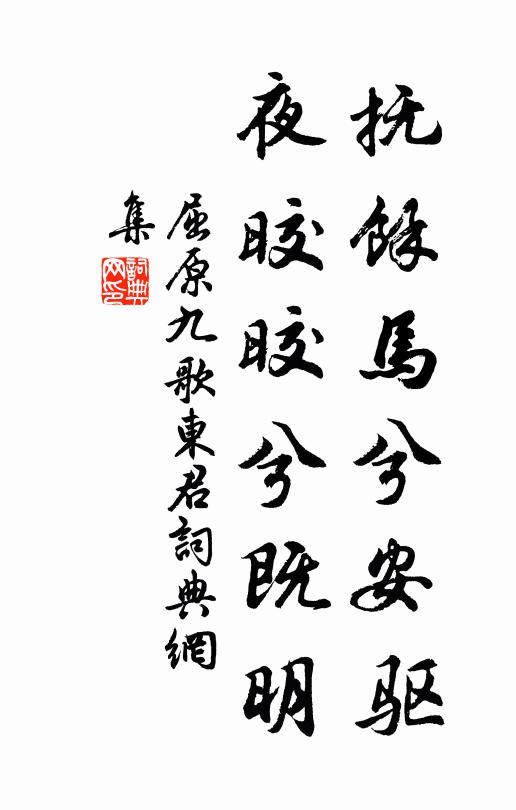 抚馀馬兮安驱
夜晈晈兮既明
屈原九歌東君詞典網
集
詞典
网印